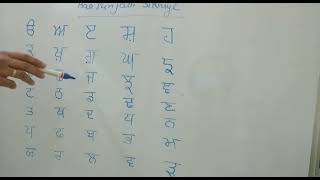 Punjabi Sikhiye
ੳ ਅ ੲ ਸ਼ ਹ
ਕ ਖ਼ ਗ਼ ਘ ਙ
ਜ ਝ ਞ
ਟ ਠ ਡ ਢ ਣ
ਤ ਥ ਦ ਧ ਨ
ਪ ਫ ਬ ਭ ਮ
ਯ ਰ ਲ ਵ ੜ